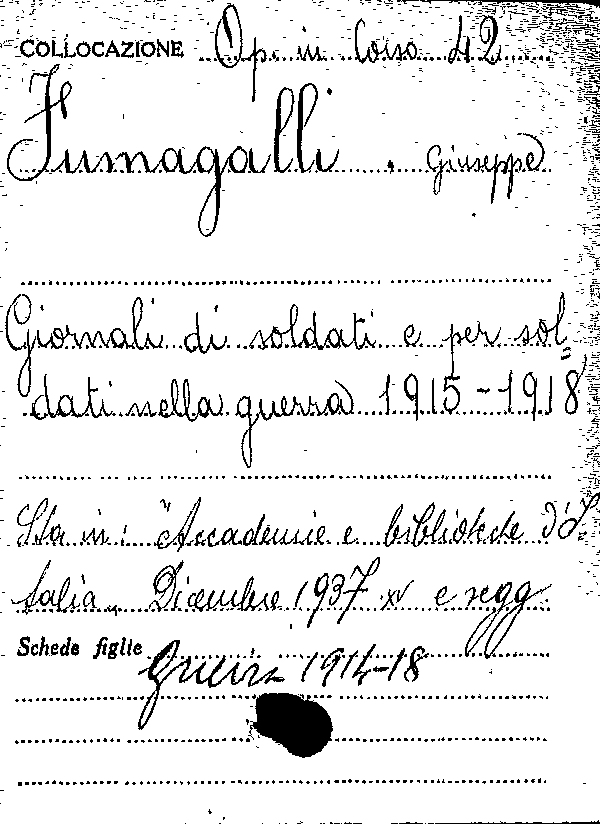 COLLOCAZIONE Op. in Corso 42
Fumagalli . Giuseppe
Giornali di soldati e per sol=
dati nella guerra 1915-1918
Sta in: "Accademie e biblioteche d'I=
talia„ Dicembre 1937 XV e segg.
Schede figlie Guerra 1914-18